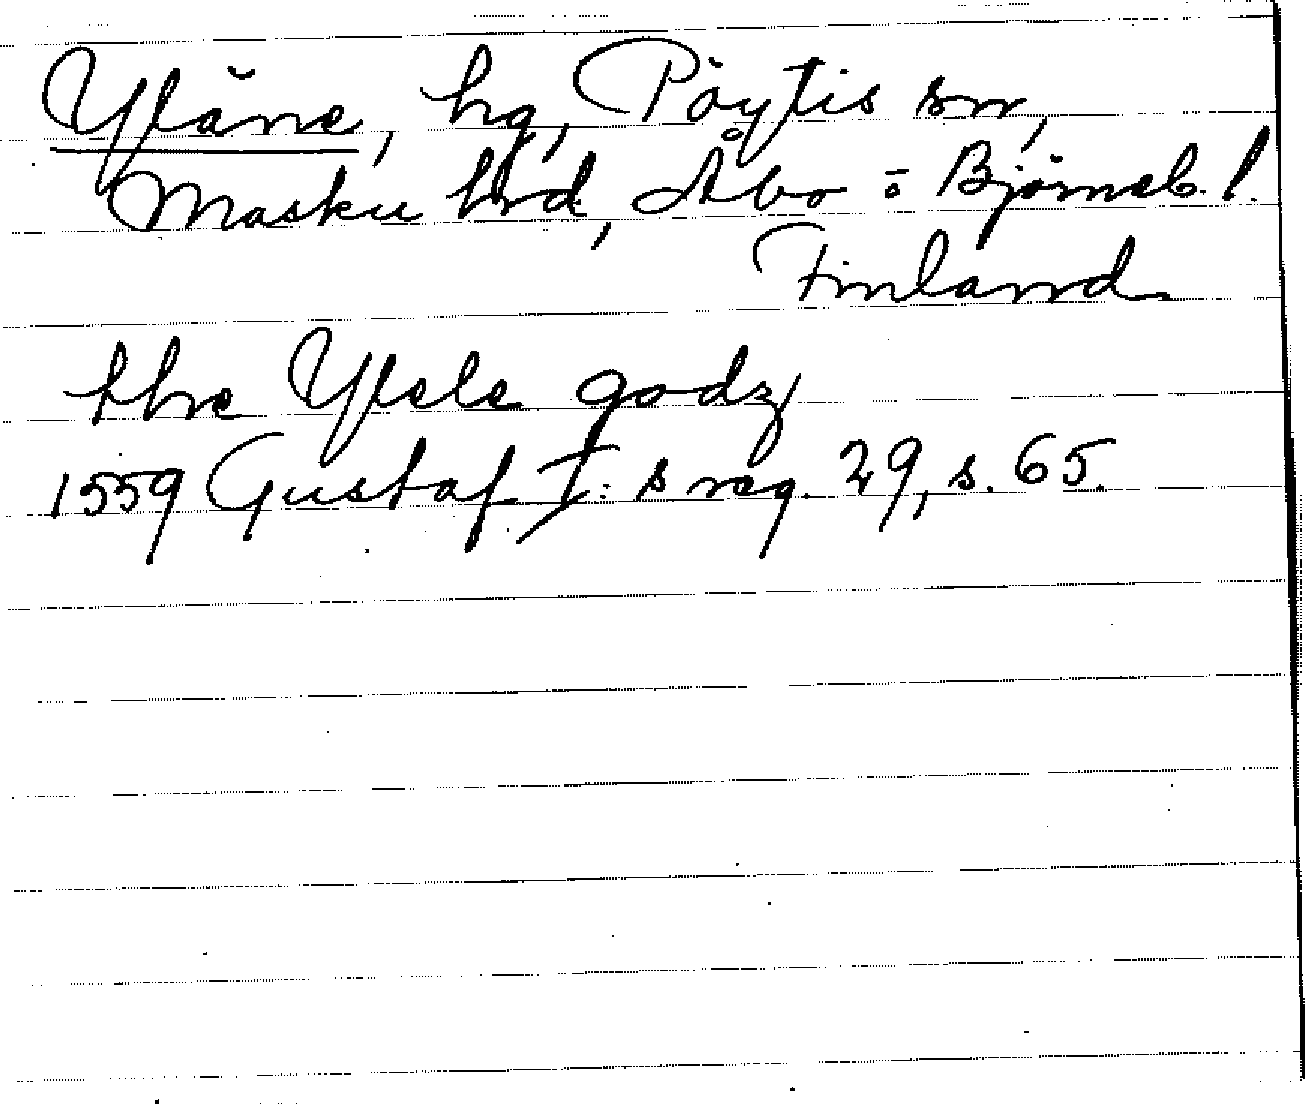 Yläne, hg, Pöytis sn,
Masku hrd, Åbo o Björneb. l.
Finland
thre Ylele godz
1559 Gustaf I:s reg. 29, s. 65.